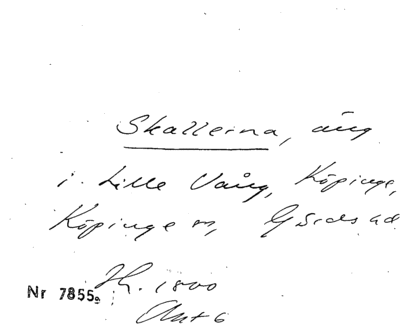 Skallerna, äng
i Lille Vång, Köpinge,
Köpinge sn, Gärds hd
Jh. 1800
Nr 7855.
Akt 6